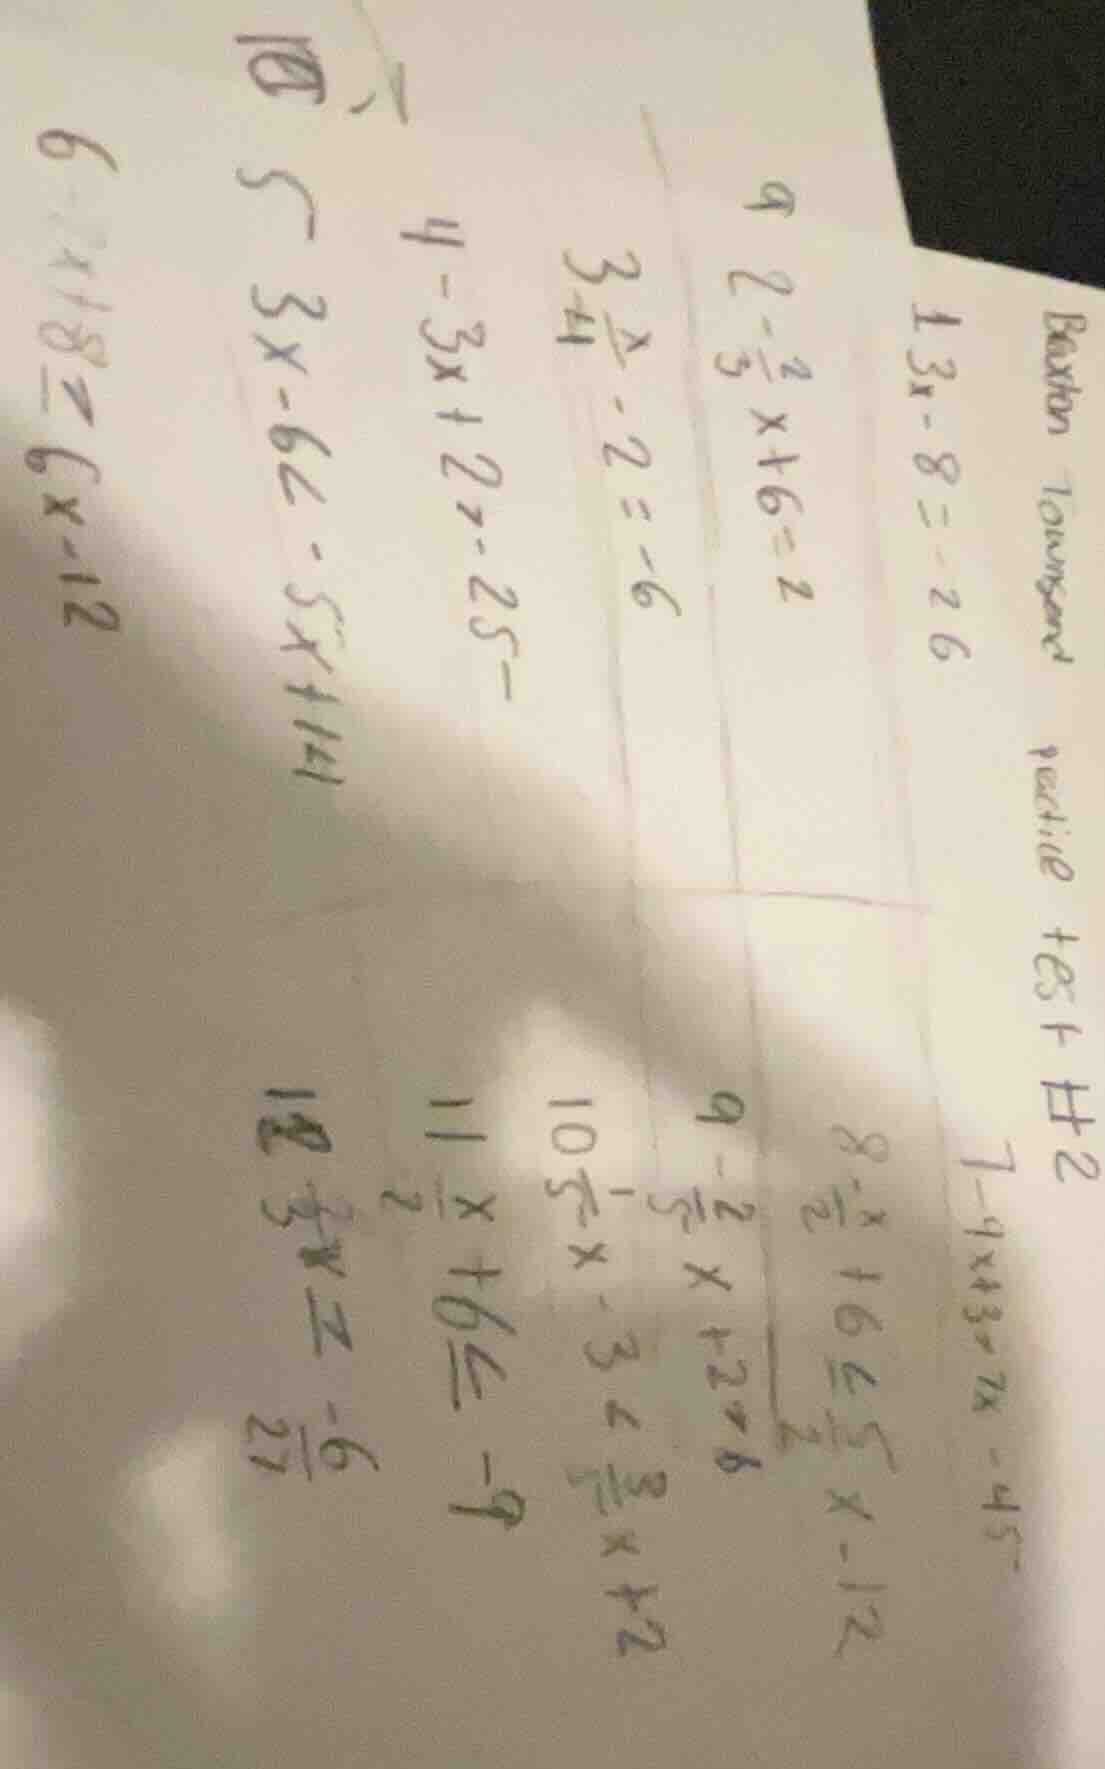 Baxton Townsend practice test #2
1 3x - 8 = -26
2 -2/3 x + 6 = 2
3 x/4 - 2 = -6
4 -3x + 2 > -25
5 3x - 6 < -5x + 14
6 -2x + 8 ≥ 6x - 12
7 -4x + 3 > 7x - 45
8 -x/2 + 6 ≤ 5/2 x - 12
9 -2/5 x + 2 > 6
10 1/5 x - 3 < 3/5 x + 2
11 x/2 + 6 ≤ -9
12 2/3 x ≥ -6/27